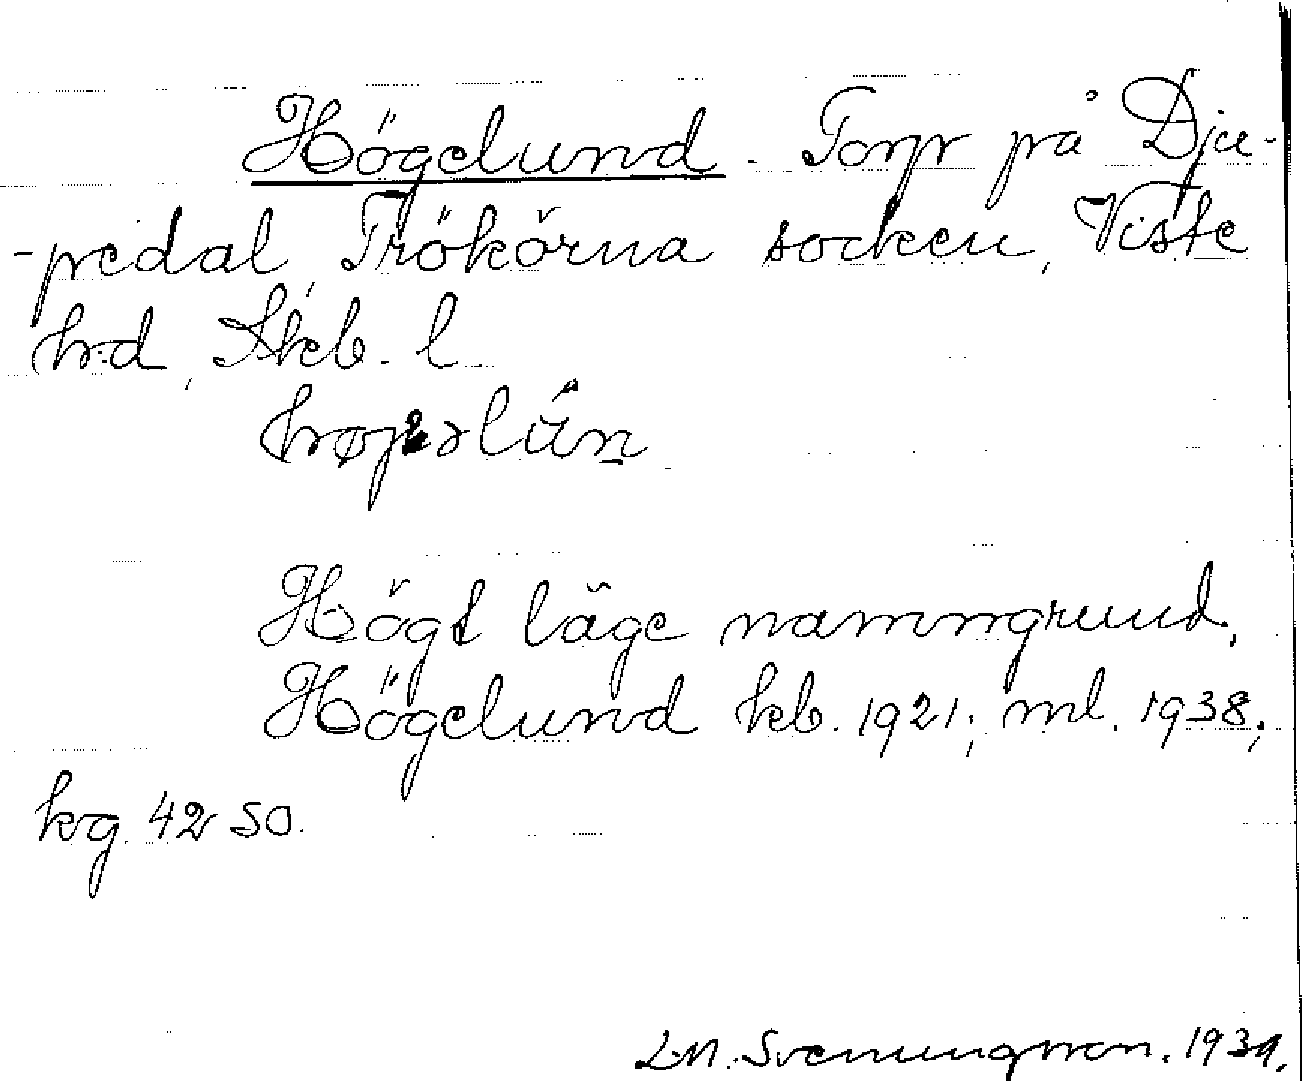 Högelund. Torp på Dju-
-pedal, Trökörna socken, Viste
hd, Skb. l.
Högt läge namngrund.
Högelund kb. 1921; ml. 1938;
kg 42 SO.
L.M. Svenungsson. 1939.